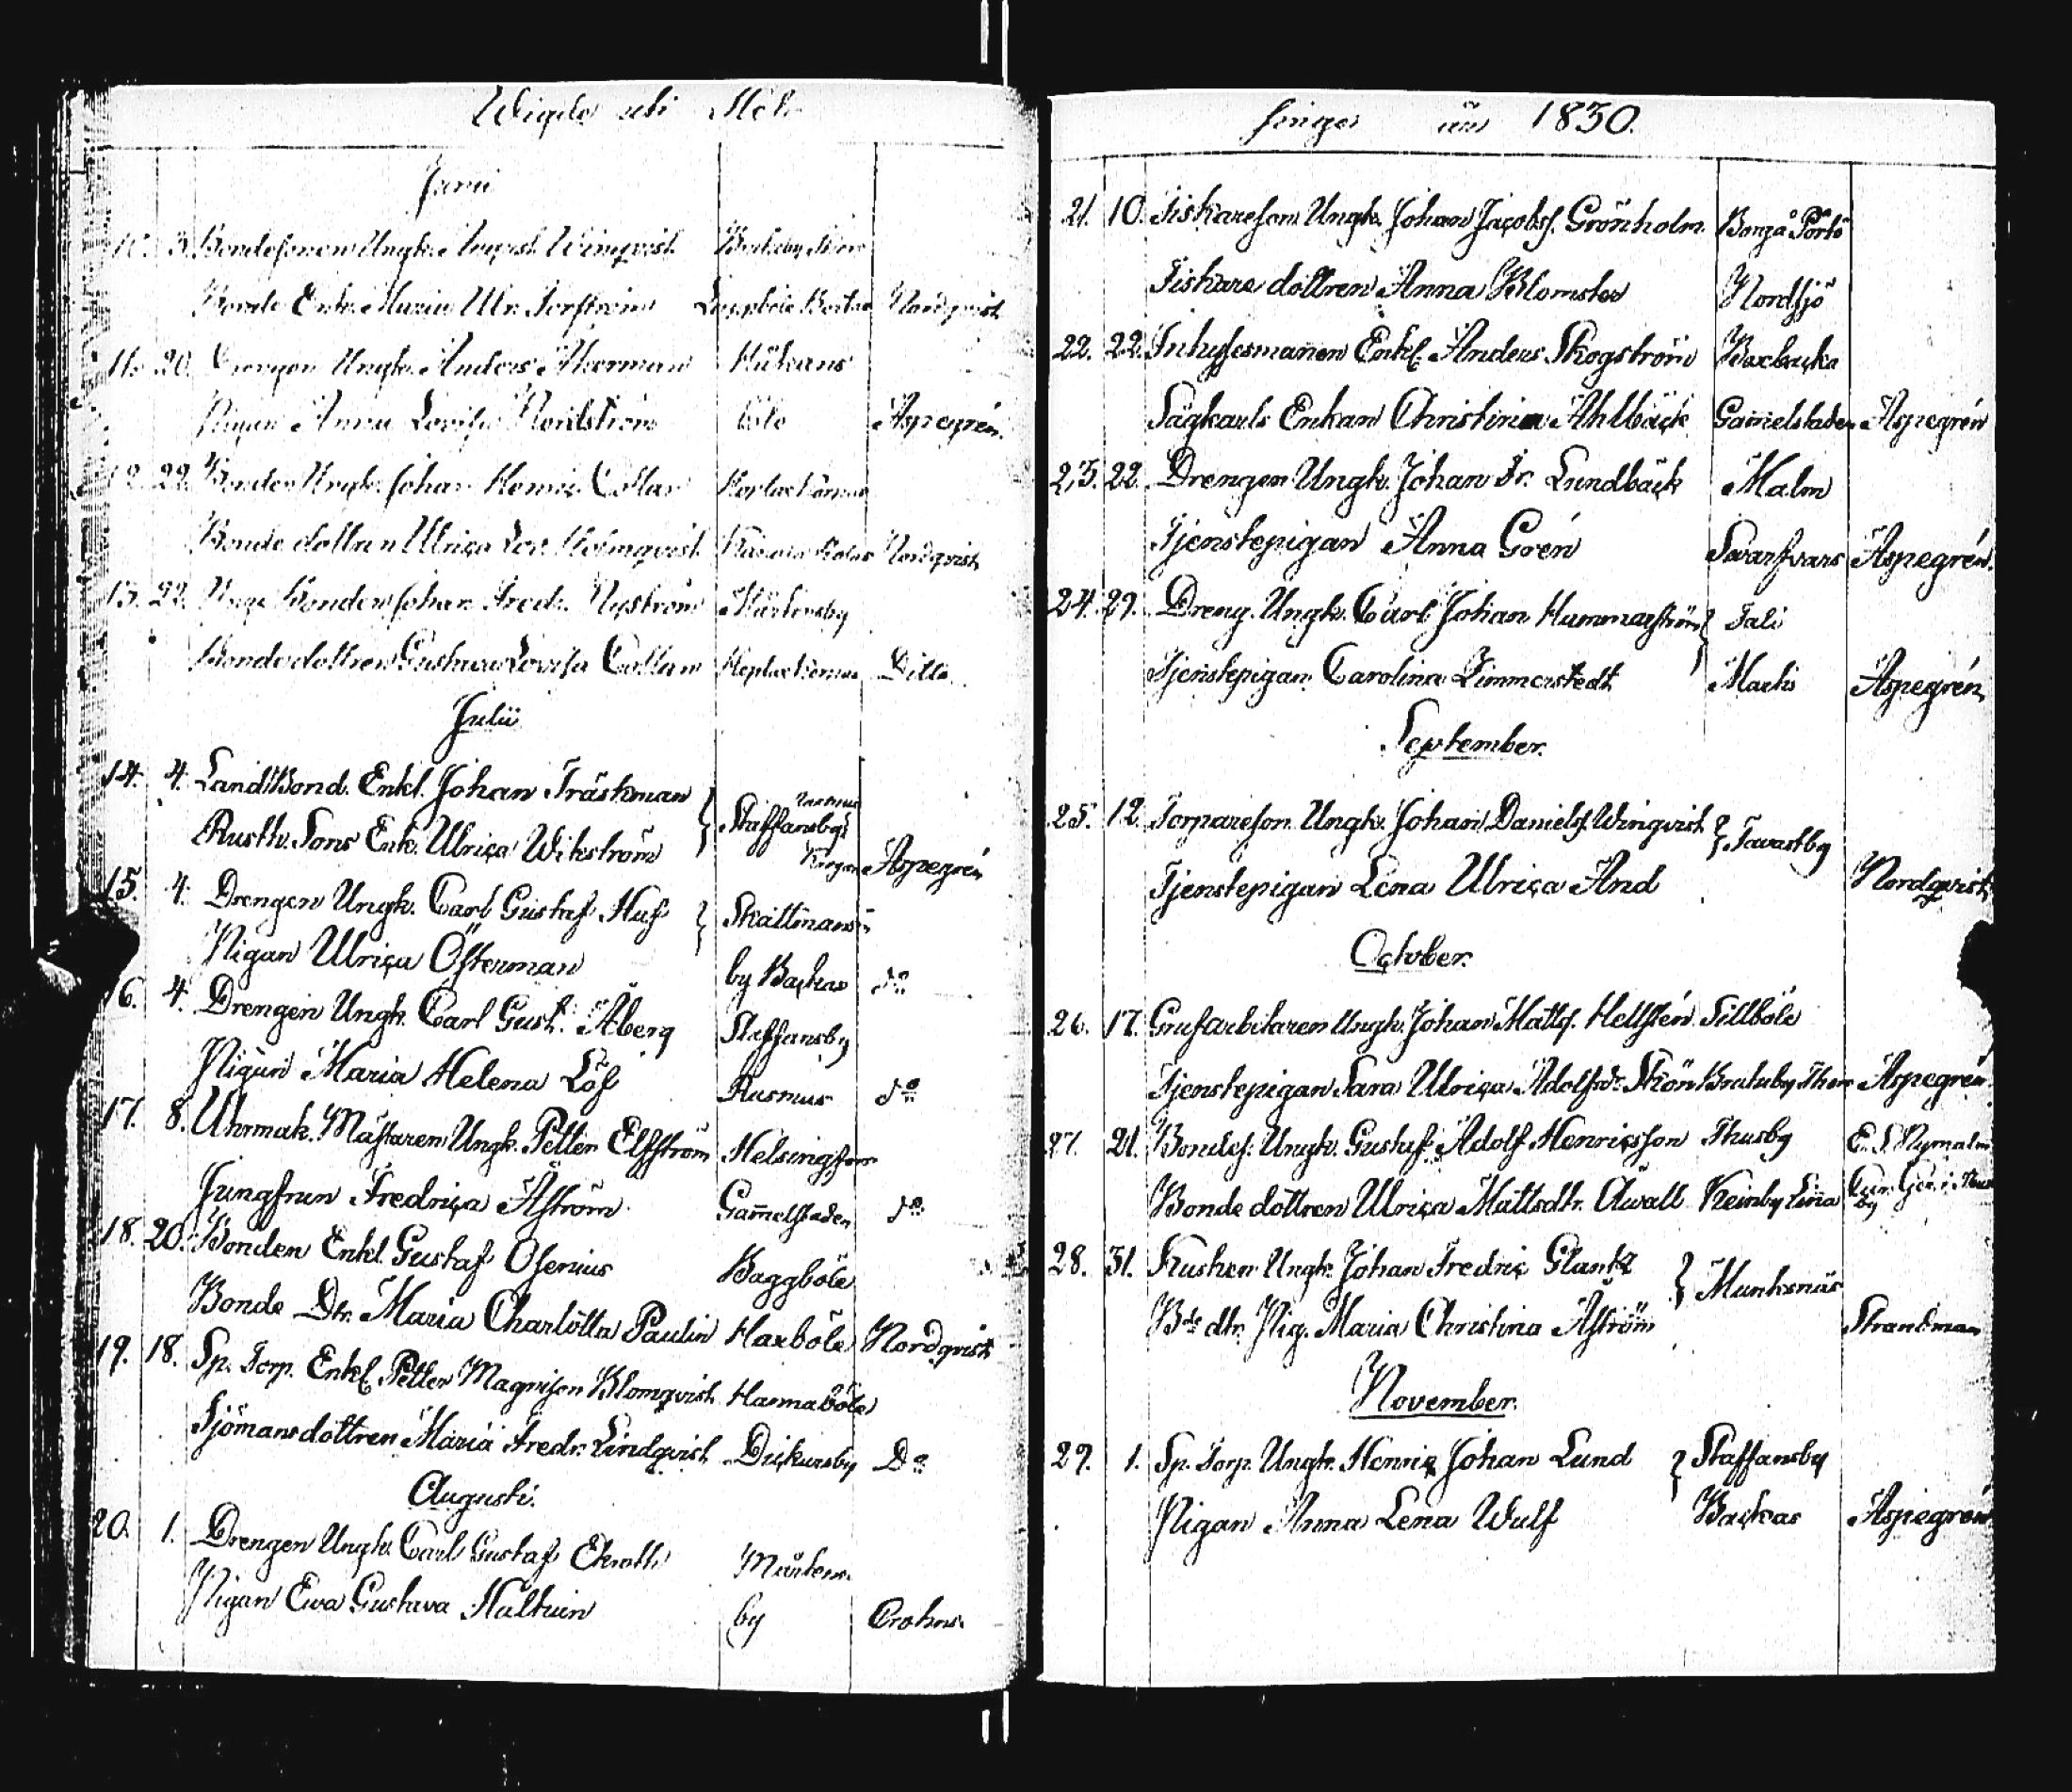 Wigde uti Hel-
Junii
10. 3. Bondesonen Ungk. August Winqvist
Bonde Enk. Maria Ulr. Forsström Nordqvist
11. 20. Drengen Ungk. Anders Åkerman Håkans
Pigan Anna Lovisa Nordström böle Aspegrén
12. 22. Bonden Ungk. Johan Henric Collan
Bonde dottren Ulrica Lov. Holmqvist Nordqvist
13. 22. Unge Bonden Johan Fredr. Nyström Mårtensby
Bonde dottren Gustava Lovisa Collan Ditto
Julii
14. 4. LandtBond. Enkl. Johan Träskman } Staffansby
Rusth. Sons Enk. Ulrica Wikström Aspegrén
15. 4. Drengen Ungk. Carl Gustaf Huf } Skattmans-
Pigan Ulrica Österman by Backas do
16. 4. Drengen Ungk. Carl Gust. Åberg Staffansby
Pigan Maria Helena Löf Rasmus do
17. 8. Uhrmak. Mästaren Ungk. Petter Elfström Helsingfors
Jungfrun Fredrica Åström Gam̄elstaden do
18. 20. Bonden Enkl. Gustaf Osenius Baggböle
Bonde Dtr. Maria Charlotta Paulin Haxböle Nordqvist
19. 18. Sp. Torp. Enkl. Petter Magnison Blomqvist Hannaböle
Sjömans dottren Maria Fredr. Lindqvist Dickursby Do
Augusti.
20. 1. Drengen Ungk. Carl Gustaf Ekroth Mårtens-
Pigan Ewa Gustava Haltuin by Crohns.
singe år 1830.
21. 10. Fiskareson Ungk. Johan Jacobss. Grönholm Borgå Pörtö
Fiskare dottren Anna Blomster Nordsjö
22. 22. Inhysesmanen Enkl. Anders Skogström Boxbacka
Sågkarls Enkan Christina Ahlbäck Gam̄elstaden Aspegrén
23. 22. Drengen Ungk. Johan Fr. Lundbäck Malm
Tjenstepigan Anna Grén Svarfvars Aspegrén.
24. 29. Dreng. Ungk. Carl Johan Hammarström } Tali
Tjenstepigan Carolina Zimmerstedt Aspegrén
September.
25. 12. Torpareson Ungk. Johan Daniels. Winqvist } Tavastby
Tjenstepigan Lena Ulrica And Nordqvist
October.
26. 17. Grufarbitaren Ungk. Johan Matts. Hellstén Sillböle
Tjenstepigan Sara Ulrica Adolfsdr. Skön Aspegrén
27. 21. Bondes. Ungk. Gustaf Adolf Henricsson Thusby E. S. Nymalm
Bonde dottren Ulrica Mattsdtr. Awall
28. 31. Kusken Ungk. Johan Fredric Glantz } Munksnäs
Bde dtr. Pig. Maria Christina Åström Strandman
November.
29. 1. Sp. Torp. Ungk. Henric Johan Lund } Staffansby
Pigan Anna Lena Wulf Backas Aspegrén